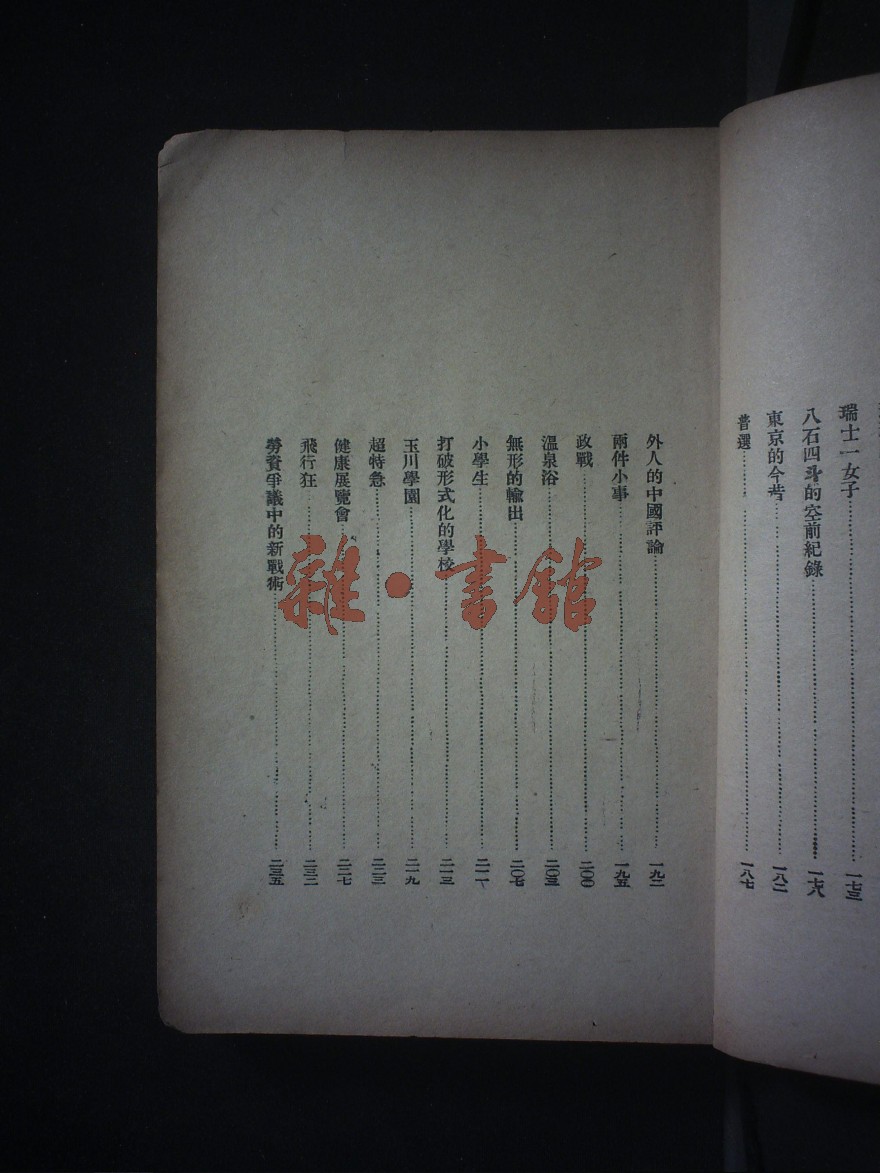 瑞士一女子……一七三
八石四斗的空前紀錄……一七八
東京的今昔……一八二
普選……一八七
外人的中國評論……一九二
兩件小事……一九五
政戰……二〇〇
溫泉浴……二〇三
無形的輸出……二〇七
小學生……二一一
打破形式化的學校……二一三
玉川學園……二一九
超特急……二二三
健康展覽會……二二七
飛行狂……二三二
勞資爭議中的新戰術……二三五
雜·書館